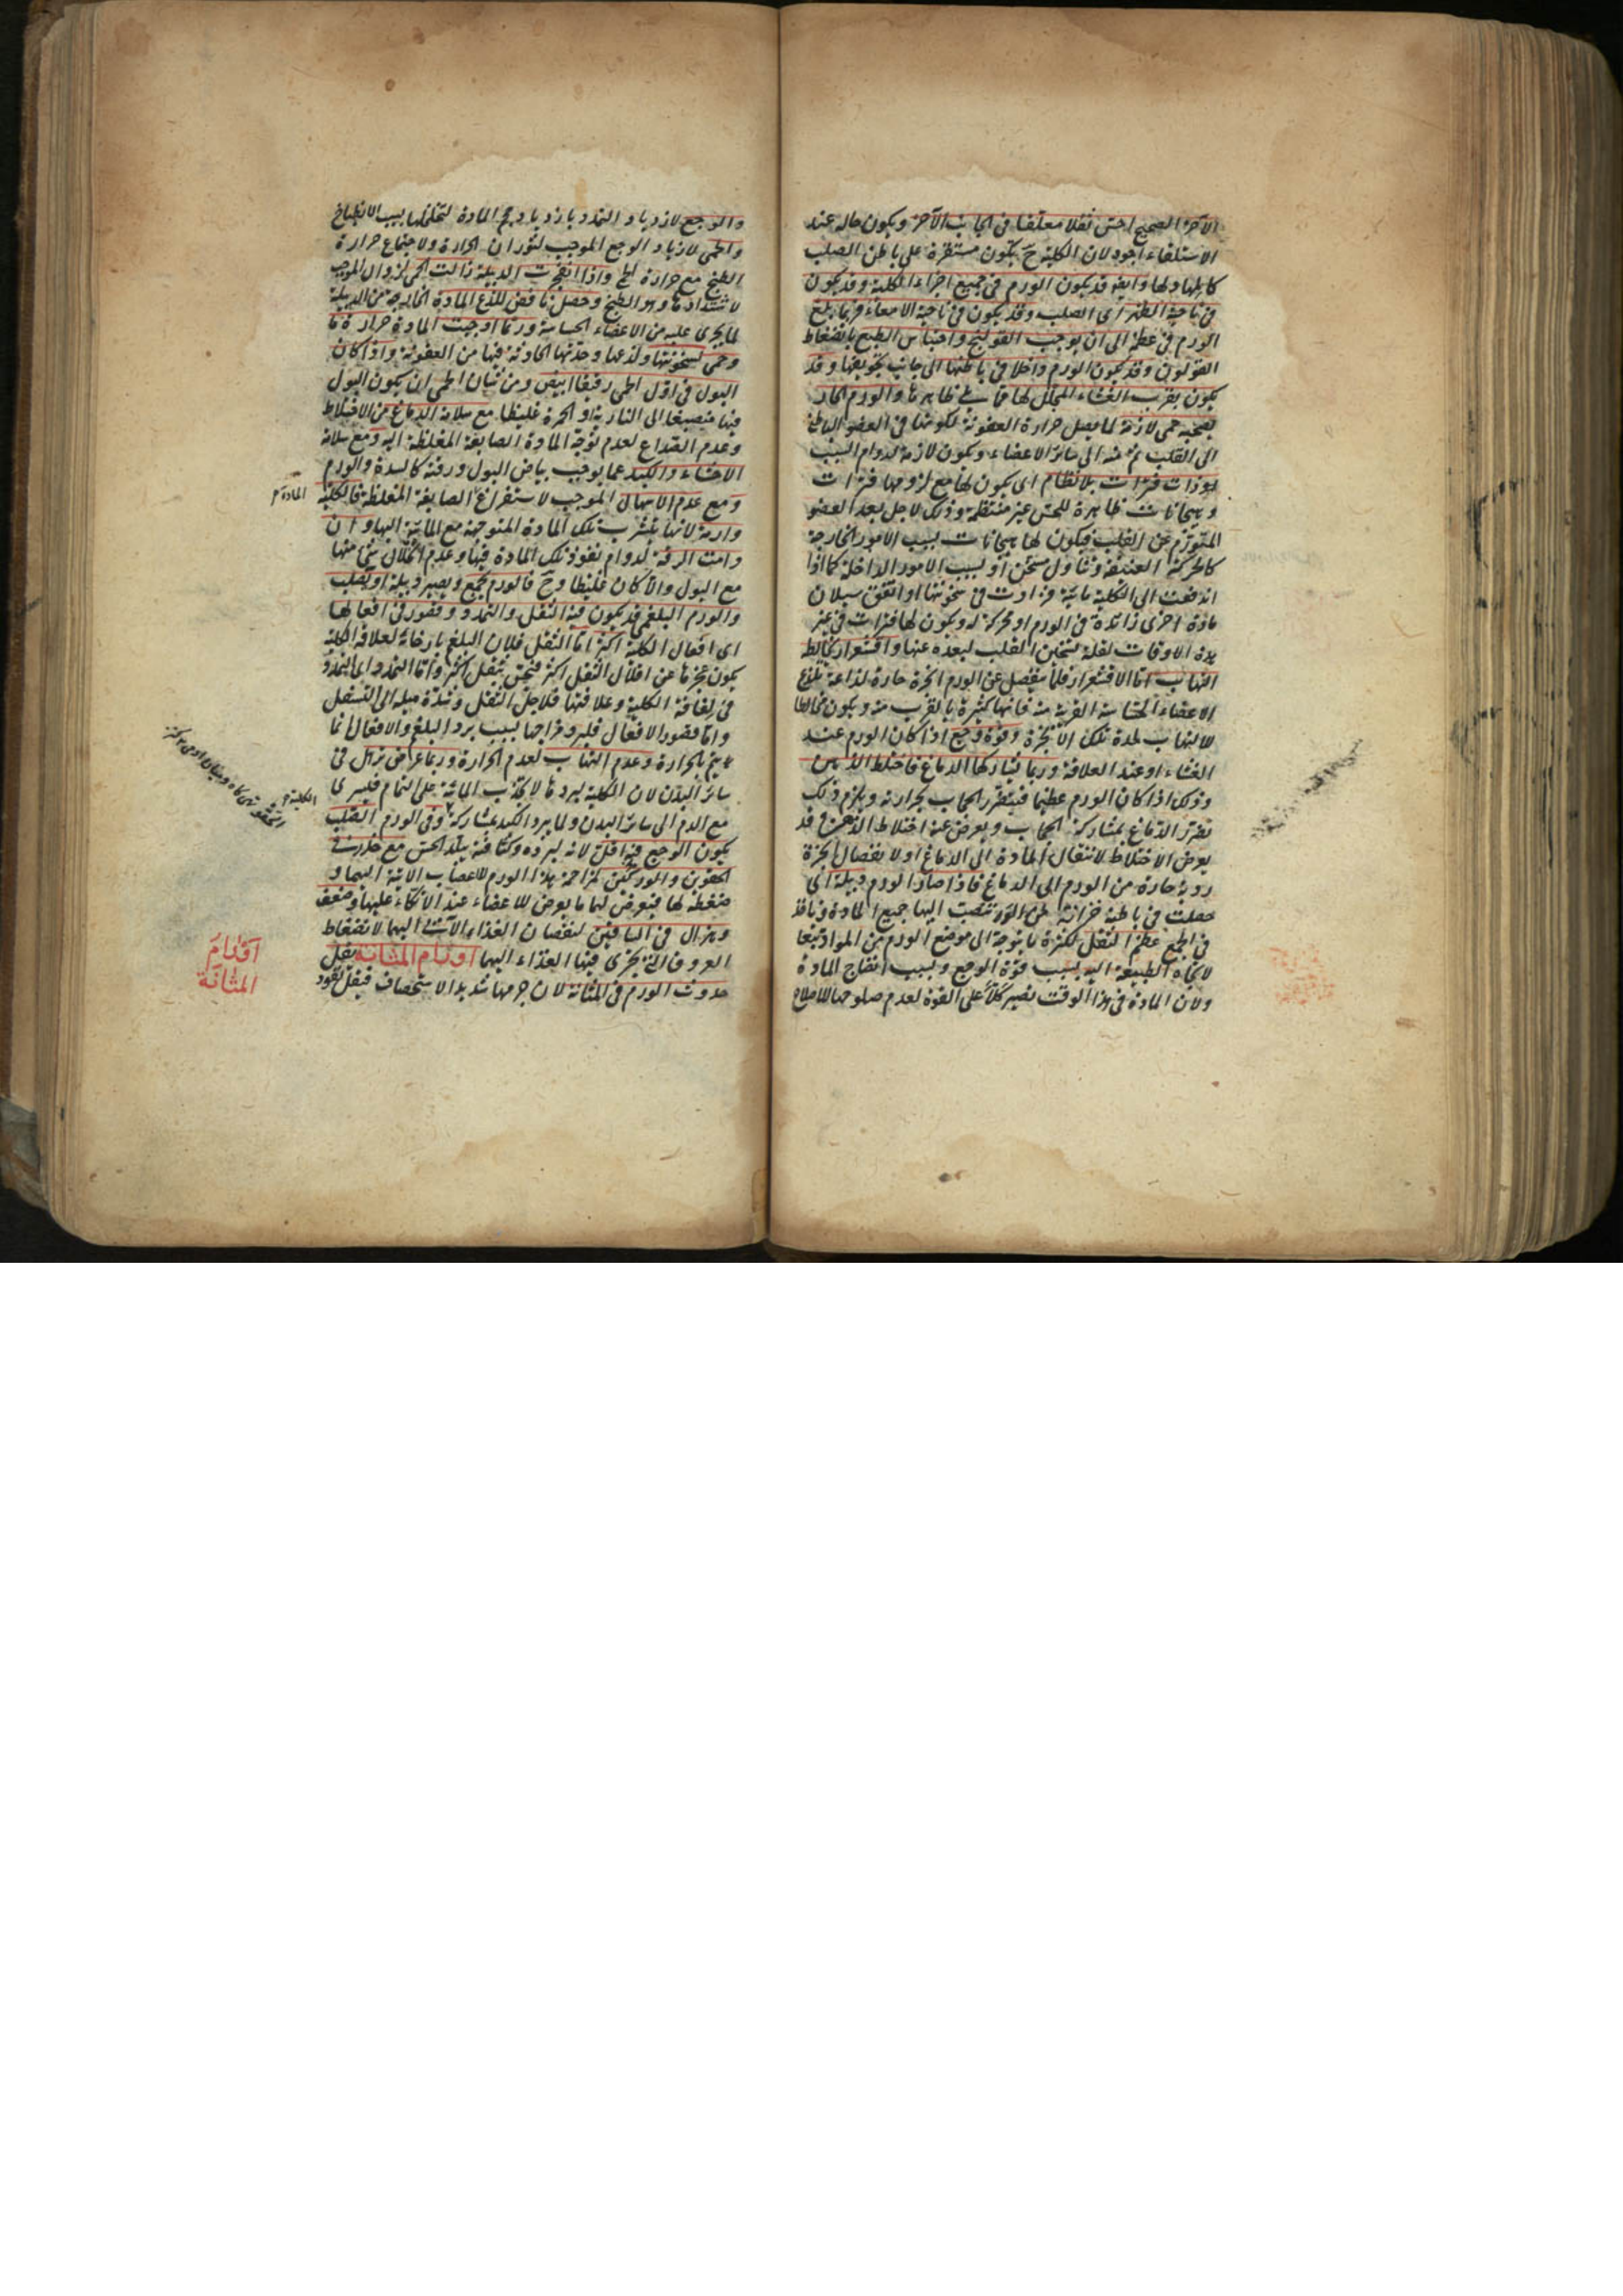 الآخر الصحيح احس ثقلا معلقا فى الجانب الآخر ويكون حاله عند
الاستلقاء اجود لان الكلية ح تكون مستقرة على باطن الصلب
كالمهاد لها وايضا قد يكون الورم فى جميع اجزاء الكلية وقد يكون
فى ناحية الظهر اى الصلب وقد يكون فى ناحية الامعاء فربما بلغ
الورم فى عظمه الى ان يوجب القولنج واحتباس الطبع بانضغاط
القولون وقد يكون الورم داخلا فى باطنها الى جانب تجويفها وقد
يكون بقرب الغشاء المجلل لها فى ظاهرها والورم الحار
يصحبه حمى لازمة لما يصل حرارة العفونة لكونها فى العضو الباطن
الى القلب ثم منه الى سائر الاعضاء ويكون لازمة لدوام السبب
ذوات فترات بلا نظام اى يكون لها مع لزومها فترات
وهيجانات ظاهرة للحس غير منتظمة وذلك لاجل بعد العضو
المتورم عن القلب فيكون لها هيجانات بسبب الامور الخارجة
كالحركة العنيفة وتناول مسخن او بسبب الامور الداخلة كما اذا
اندفعت الى الكلية مائية فزادت فى سخونتها او اتفق سيلان
مادة اخرى زائدة فى الورم او محركة له ويكون لها فترات فى غير
هذه الاوقات لقلة تسخين القلب لبعده عنها واقشعرار يخالطه
التهاب اما الاقشعرار فلما ينفصل عن الورم ابخرة حارة لذاعة تلذع
الاعضاء الحساسة القريبة منه فانها كثيرة بالقرب منه ويكون مخالطا
للالتهاب لحدة تلك الابخرة وقوة وجع اذا كان الورم عند
الغشاء او عند العلاقة وربما شاركها الدماغ فاختلط الذهن
وذلك اذا كان الورم عظيما فيتضرر الحجاب بحرارته ويلزم ذلك
تضرر الدماغ بمشاركة الحجاب ويعرض عنه اختلاط الذهن وقد
يعرض الاختلاط لانتقال المادة الى الدماغ او لانفصال ابخرة
ردية حارة من الورم الى الدماغ فاذا صار الورم دبيلة اى
حصلت فى باطنه خزانة تنصب اليها جميع المادة
فى الجمع عظم الثقل لكثرة ما يتوجه الى موضع الورم من المواد تبعا
لاتجاه الطبيعة اليه بسبب قوة الوجع وبسبب انضاج المادة
ولان المادة فى هذا الوقت تصير كلا على القوة لعدم صلوحها للاصلاح
والوجع لازدياد التمدد بازدياد حجم المادة لتخلخلها بسبب الانطباخ
والحمى لازدياد الوجع الموجب لثوران الحرارة ولاجتماع حرارة
الطبخ مع حرارة واذا انفجرت الدبيلة زالت الحمى لزوال الموجب
لاشتدادها وهو الطبخ وحصل نافض للذع المادة الخارجة من الدبيلة
لما يجرى عليه من الاعضاء الحساسة وربما اوجبت المادة حرارة ما
وحمى لسخونتها ولذعها وحدتها الحادثة فيها من العفونة واذا كان
البول فى اول الحمى رقيقا ابيض ومن شان الحمى ان يكون البول
فيها منصبغا الى النارية او الحمرة غليظا مع سلامة الدماغ من الاختلاط
وعدم الصداع لعدم توجه المادة الصابغة المغلظة اليه ومع سلامة
الاحشاء والكبد عما يوجب بياض البول ورقته كالسدة والورم
ومع عدم الاسهال الموجب لاستفراغ الصابغة المغلظة فالكلية
المادة
وارمة لانها تشرب تلك المادة المتوجهة مع المائية اليها وان
دامت الرقة لدوام نفوذ تلك المادة فيها وعدم انحلال شئ منها
مع البول والا كان غليظا وح فالورم يجمع ويصير دبيلة او يصلب
والورم البلغمى قد يكون فيه الثقل والتمدد وقصور فى افعالها
اى افعال الكلية اكثر اما الثقل فلان البلغم بارخائه لعلاقة الكلية
يكون عجزها عن اقلال الثقل اكثر فيحس بثقل اكثر واما التمدد اى التمدد
فى لفافة الكلية وعلاقتها فلاجل الثقل وشدة ميله الى التسفل
واما قصور الافعال فلبرد مزاجها بسبب برد البلغم والافعال انما
يتم بالحرارة وعدم التهاب لعدم الحرارة وربما عرض ترهل فى
سائر البدن لان الكلية لبردها لا تجذب المائية على التمام فيسرى
مع الدم الى سائر البدن ولما يبرد الكبد بمشاركة وفى الورم الصلب
الكلية
يكون الوجع فيه اقل لانه لبرده وكثافته يبلد الحس مع خدر فى
الحقوين والوركين لمزاحمة هذا الورم للاعصاب الآتية اليهما و
ضغطه لها فيعرض لهما ما يعرض للاعضاء عند الاتكاء عليها وضعف
وهزال فى الساقين لنقصان الغذاء الآتى اليهما لانضغاط
العروق التى يجرى فيها الغذاء اليهما اورام المثانة يقل
حدوث الورم فى المثانة لان جرمها شديد الاستحصاف فيقل نفوذ
اورام
المثانة